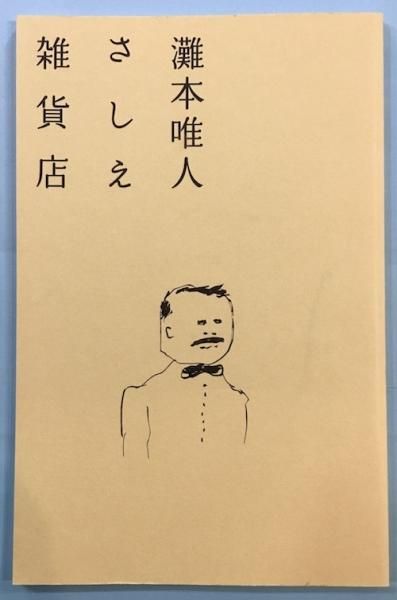 灘本唯人
さしえ
雑貨店